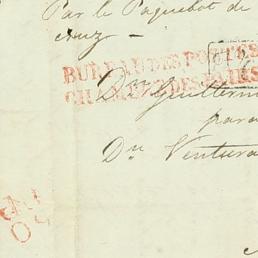 Par le Paquebot de
cruz —
BUREAU DES POSTES
CHAMBRE DES PAIRS
Dn Guillermo
para
Dn Ventura